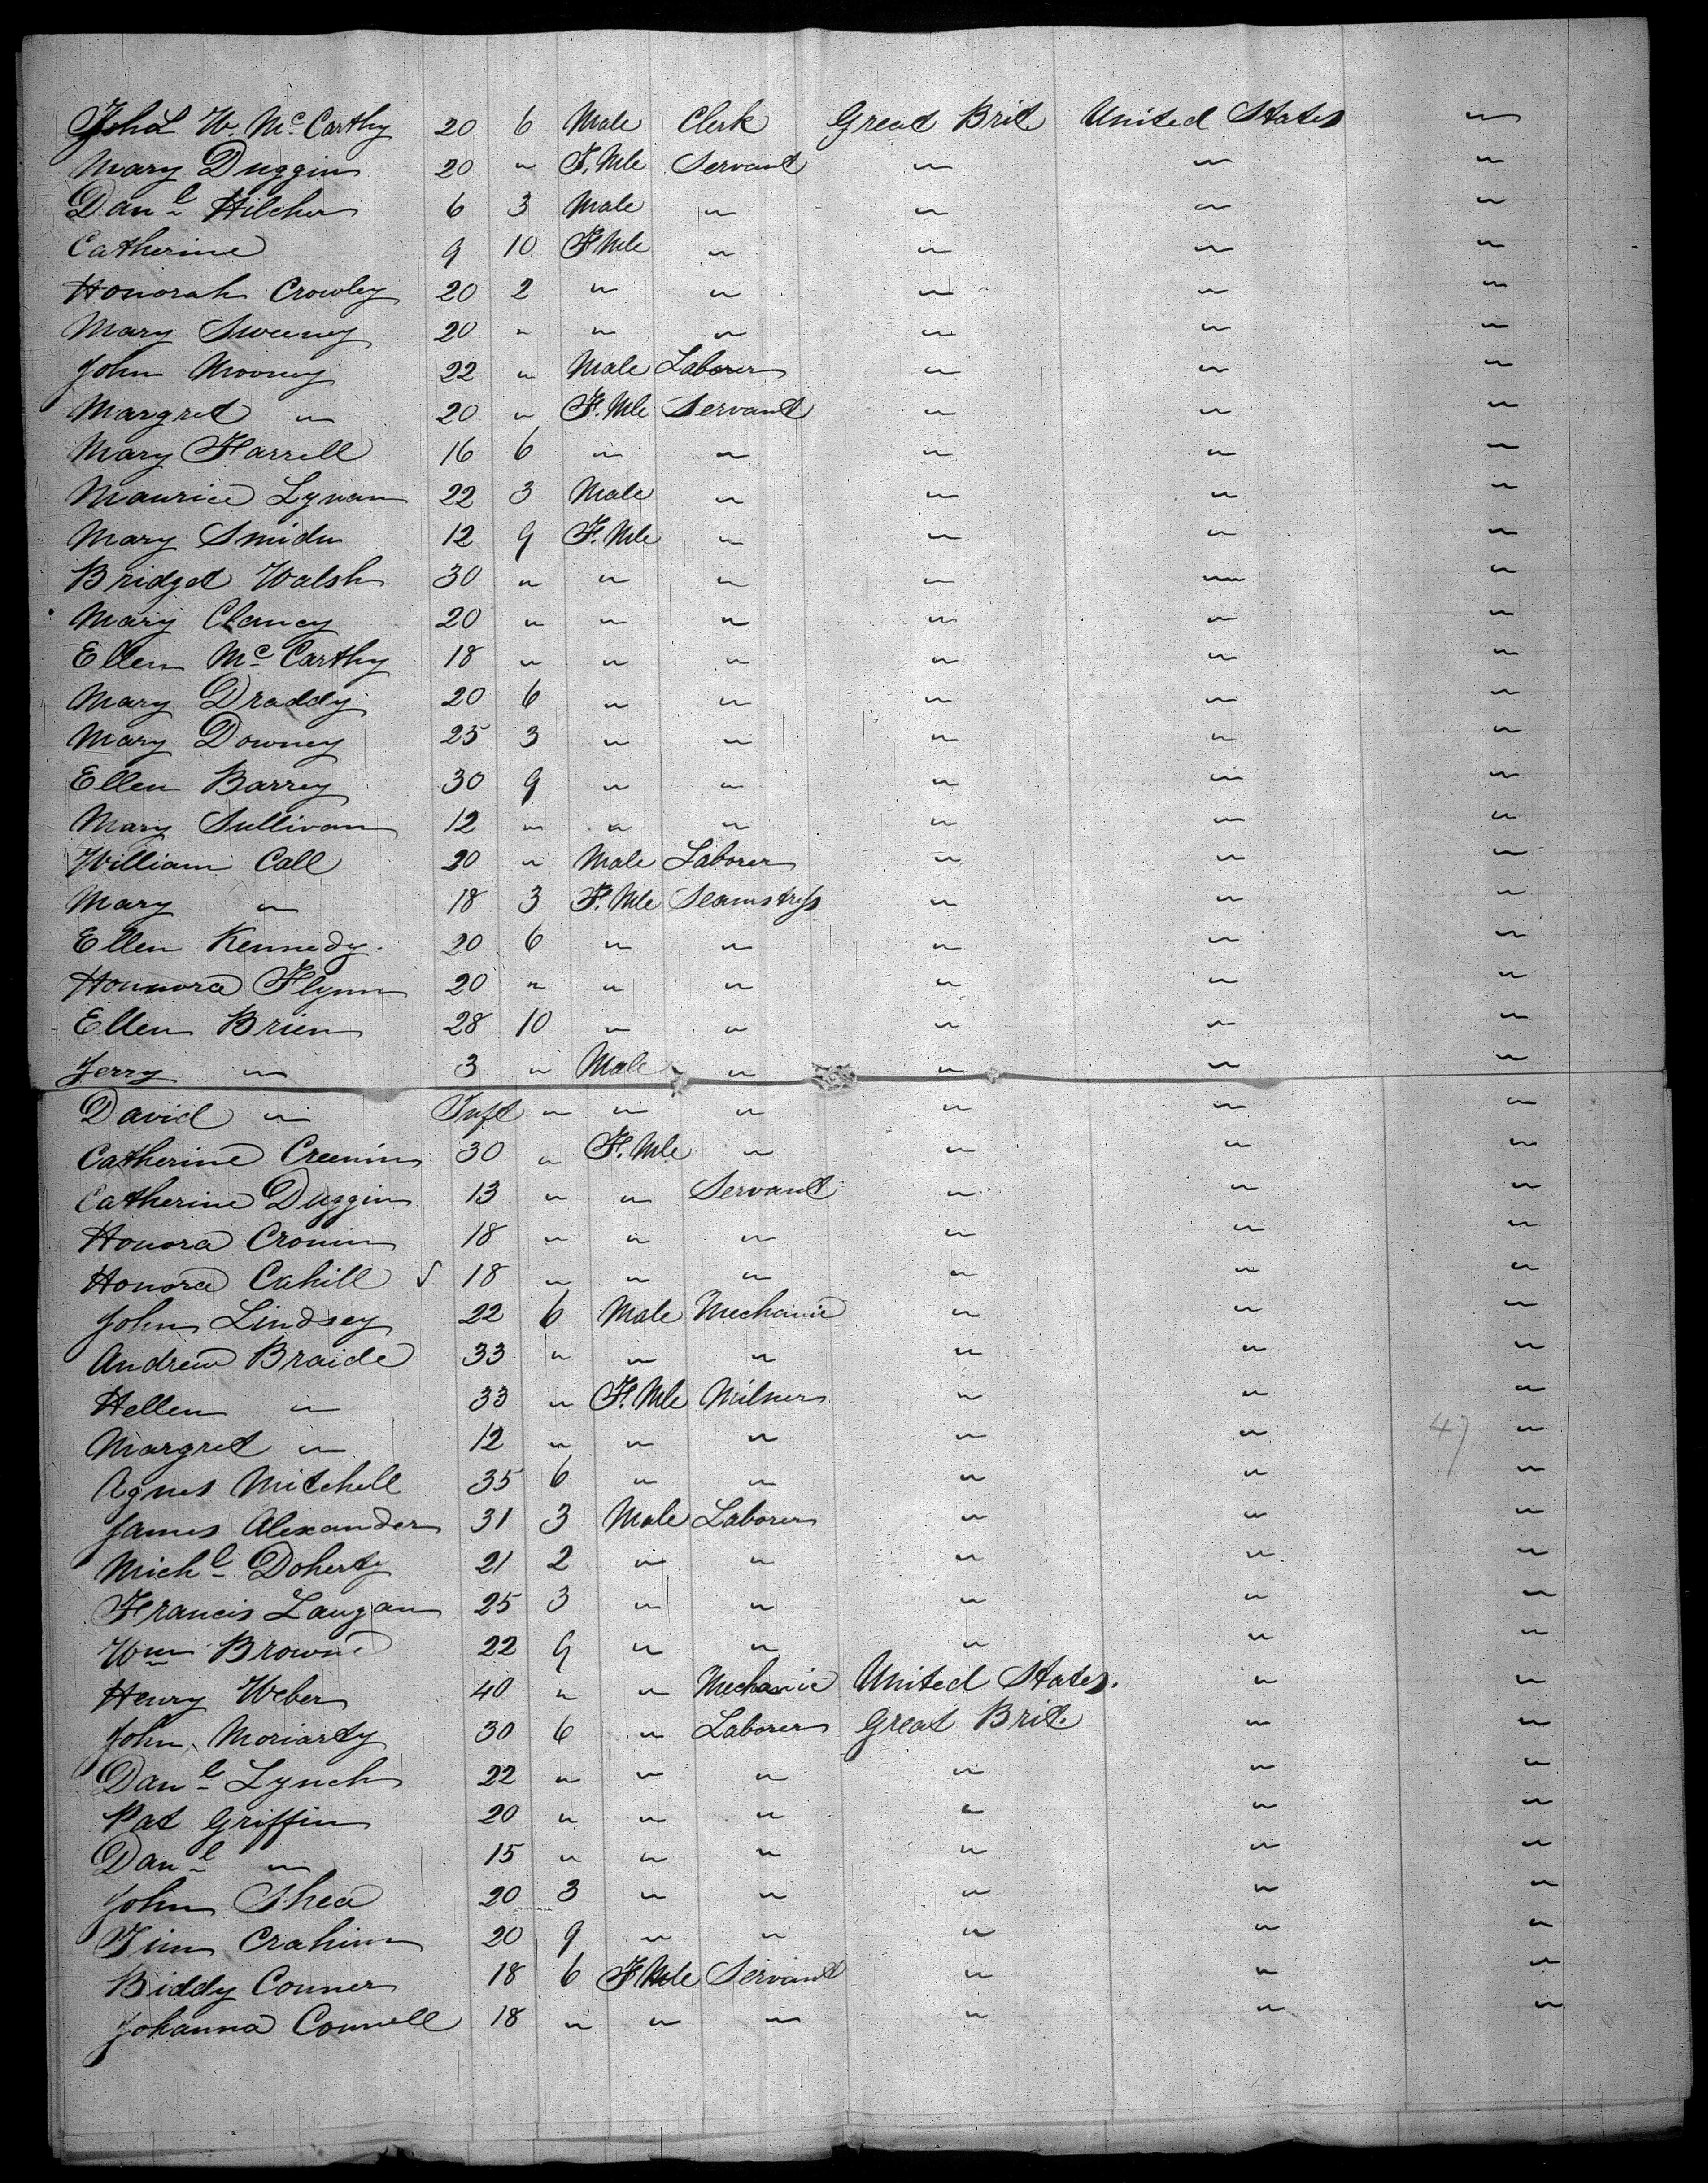 W. Mc Carthy 20 6 Male Clerk Great Brit. United States "
Mary Duggin 20 " F. Mle Servant " " "
Danl Hilcher 6 3 Male " " " "
Catherine 9 10 F Mle " " " "
Honorah Crowley 20 2 " " " " "
Mary Sweeny 20 " " " " " "
John Mooney 22 " Male Laborer " " "
Margret " 20 " F. Mle Servant " " "
Mary Farrell 16 6 " " " " "
Maurice 22 3 Male " " " "
Mary 12 9 F. Mle " " " "
Bridget Walsh 30 " " " " " "
Mary Clancy 20 " " " " " "
Ellen Mc Carthy 18 " " " " " "
Mary Draddy 20 6 " " " " "
Mary Downey 25 3 " " " " "
Ellen Barrey 30 9 " " " " "
Mary Sullivan 12 " " " " " "
William Call 20 " Male Laborer " " "
Mary " 18 3 F. Mle Seamstress " " "
Ellen Kennedy. 20 6 " " " " "
Honnora Flynn 20 " " " " " "
Ellen Brien 28 10 " " " " "
Jerry " 3 " Male " " " "
David " Inft " " " " " "
Catherine Creenin 30 " F. Mle " " " "
Catherine Duggin 13 " " Servant " " "
Honora Cronin 18 " " " " " "
Honora Cahill 18 " " " " " "
John Lindsey 22 6 Male Mechanic " " "
Andrew Braide 33 " " " " " "
Hellen " 33 " F. Mle Milner " " "
Margret " 12 " " " " " 47 "
Agnes Mitchell 35 6 " " " " "
James Alexander 31 3 Male Laborer " " "
Michl Doherty 21 2 " " " " "
Francis Laugan 25 3 " " " " "
Wm Browne 22 9 " " " " "
Henry Weber 40 " " Mechanic United States. " "
John Moriarty 30 6 " Laborer Great Brit. " "
Danl Lynch 22 " " " " " "
Pat Griffin 20 " " " " " "
Danl " 15 " " " " " "
John Shea 20 3 " " " " "
Tim Crahinn 20 9 " " " " "
Biddy Conner 18 6 F Mle Servant " " "
Johanna Connell 18 " " " " " "